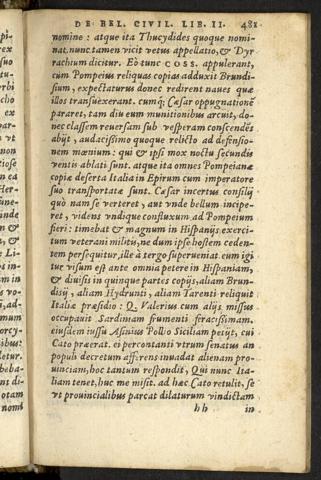 DE BEL. CIVIL. LIB. II. 481
nomine : atque ita Thucydides quoque nomi-
nat. nunc tamen vicit vetus appellatio, & Dyr
rachium dicitur. Eò tunc COSS. appulerant,
cum Pompeius reliquas copias adduxit Brundi-
sium, expectaturus donec redirent naues quæ
illos transuexerant. cumq; Cæsar oppugnationē
pararet, tam diu eum munitionibus arcuit, do-
nec classem reuersam sub vesperam conscendēs
abijt, audacissimo quoque relicto ad defensio-
nem mœnium: qui & ipsi mox noctu secundis
ventis ablati sunt. atque ita omnes Pompeianæ
copiæ deserta Italia in Epirum cum imperatore
suo transportatæ sunt. Cæsar incertus consilij
quò nam se verteret, aut vnde bellum incipe-
ret, videns vndique confluxum ad Pompeium
fieri: timebat & magnum in Hispanijs exerci-
tum veterani militis, ne dum ipse hostem ceden-
tem persequitur, ille à tergo superueniat. eum igi
tur visum est ante omnia petere in Hispaniam,
& diuisis in quinque partes copijs, aliam Brun-
dusij, aliam Hydrunti, aliam Tarenti reliquit
Italiæ præsidio: Q. Valerius cum alijs missus
occupauit Sardiniam frumenti feracissimam.
eiusdem iussu Asinius Pollio Siciliam petijt, cui
Cato præerat. ei percontanti vtrum senatus an
populi decretum afferens inuadat alienam pro-
uinciam, hoc tantum respondit, Qui nunc Ita-
liam tenet, huc me misit. ad hæc Cato retulit, se
vt prouincialibus parcat dilaturum vindictam
hh in